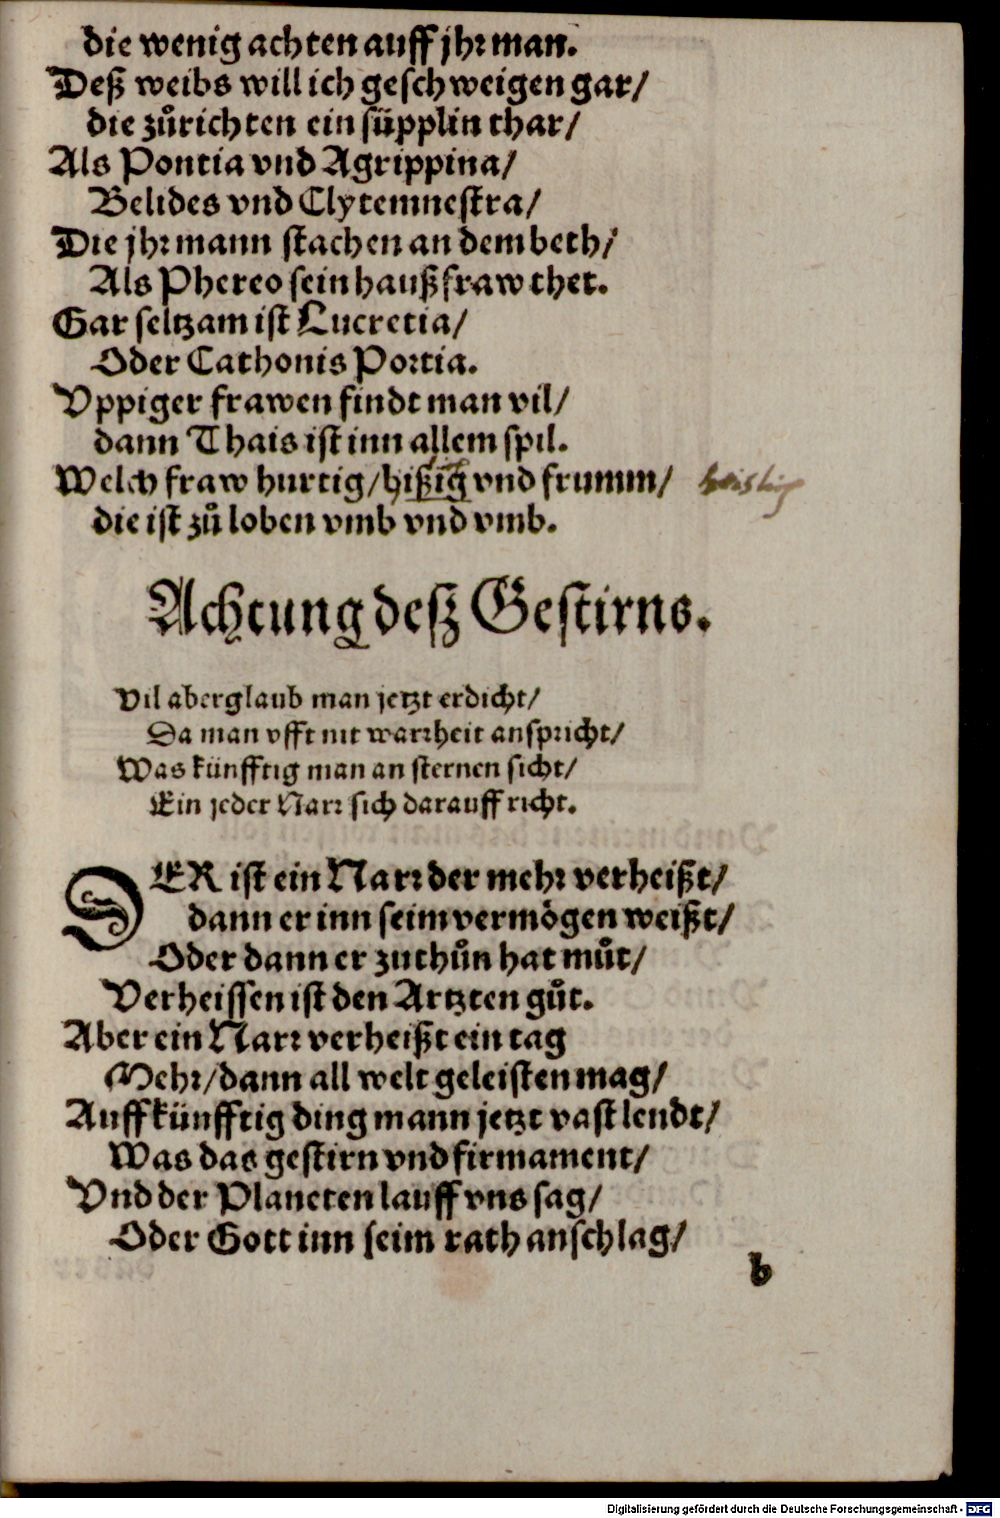 die wenig achten auff jhr man.
Deß weibs will ich geschweigen gar/
die zuͦrichten ein süpplin thar/
Als Pontia vnd Agrippina/
Belides vnd Clytemnestra/
Die jhr mann stachen an dem beth/
Als Phereo sein haußfraw thet.
Gar seltzam ist Lucretia/
Oder Cathonis Portia.
Vppiger frawen findt man vil/
dann Thais ist inn allem spil.
Welch fraw hurtig/hißig vnd frumm/
die ist zuͦ loben vmb vnd vmb.
Achtung deß Gestirns.
Vil aberglaub man jetzt erdicht/
Da man offt mit warrheit anspricht/
Was künfftig man an sternen sicht/
Ein jeder Narr sich darauff richt.
DER ist ein Narr der mehr verheißt/
dann er inn seim vermögen weißt/
Oder dann er zuthuͦn hat muͦt/
Verheissen ist den Artzten guͦt.
Aber ein Narr verheißt ein tag
Mehr/dann all welt geleisten mag/
Auff künfftig ding mann jetzt vast lendt/
Was das gestirn vnd firmament/
Vnd der Planeten lauff vns sag/
Oder Gott inn seim rath anschlag/
b
Digitalisierung gefördert durch die Deutsche Forschungsgemeinschaft - DFG